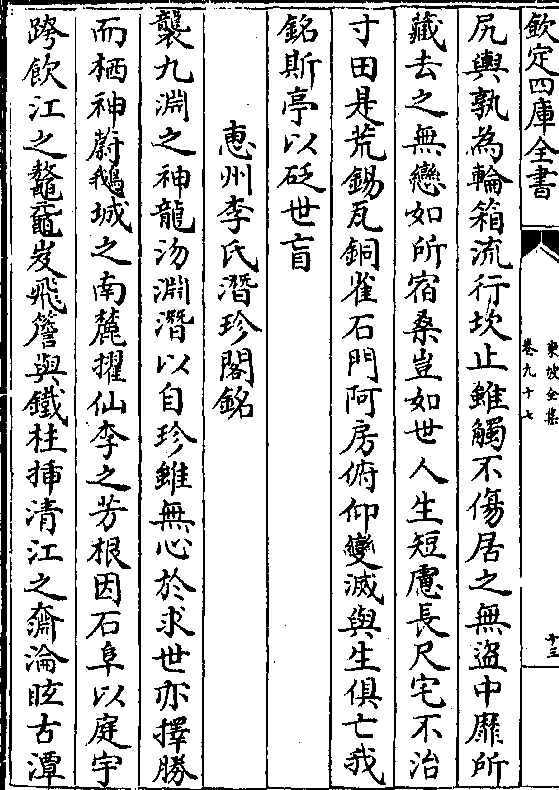 欽定四庫全書
東坡全集
卷九十七
十三
尻輿孰為輪箱流行坎止雖觸不傷居之無盜中靡所
藏去之無戀如所宿桑豈如世人生短慮長尺宅不治
寸田是荒錫瓦銅雀石門阿房俯仰變滅與生俱亡我
銘斯亭以砭世盲
惠州李氏潛珍閣銘
襲九淵之神龍沕淵潛以自珍雖無心於求世亦擇勝
而栖神蔚鵝城之南麓擢仙李之芳根因石阜以庭宇
跨飲江之鼇黿岌飛簷與鐵柱揷清江之奫淪眩古潭